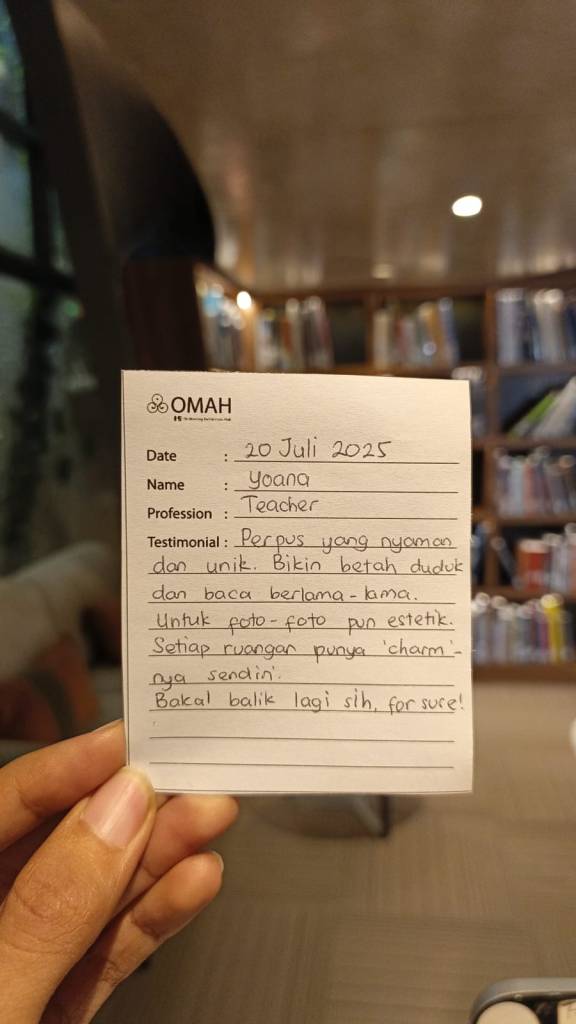 OMAH
Date : 20 Juli 2025
Name : Yoana
Profession : Teacher
Testimonial : Perpus yang nyaman
dan unik. Bikin betah duduk
dan baca berlama-lama.
Untuk foto-foto pun estetik.
Setiap ruangan punya 'charm'-
nya sendiri.
Bakal balik lagi sih, for sure!